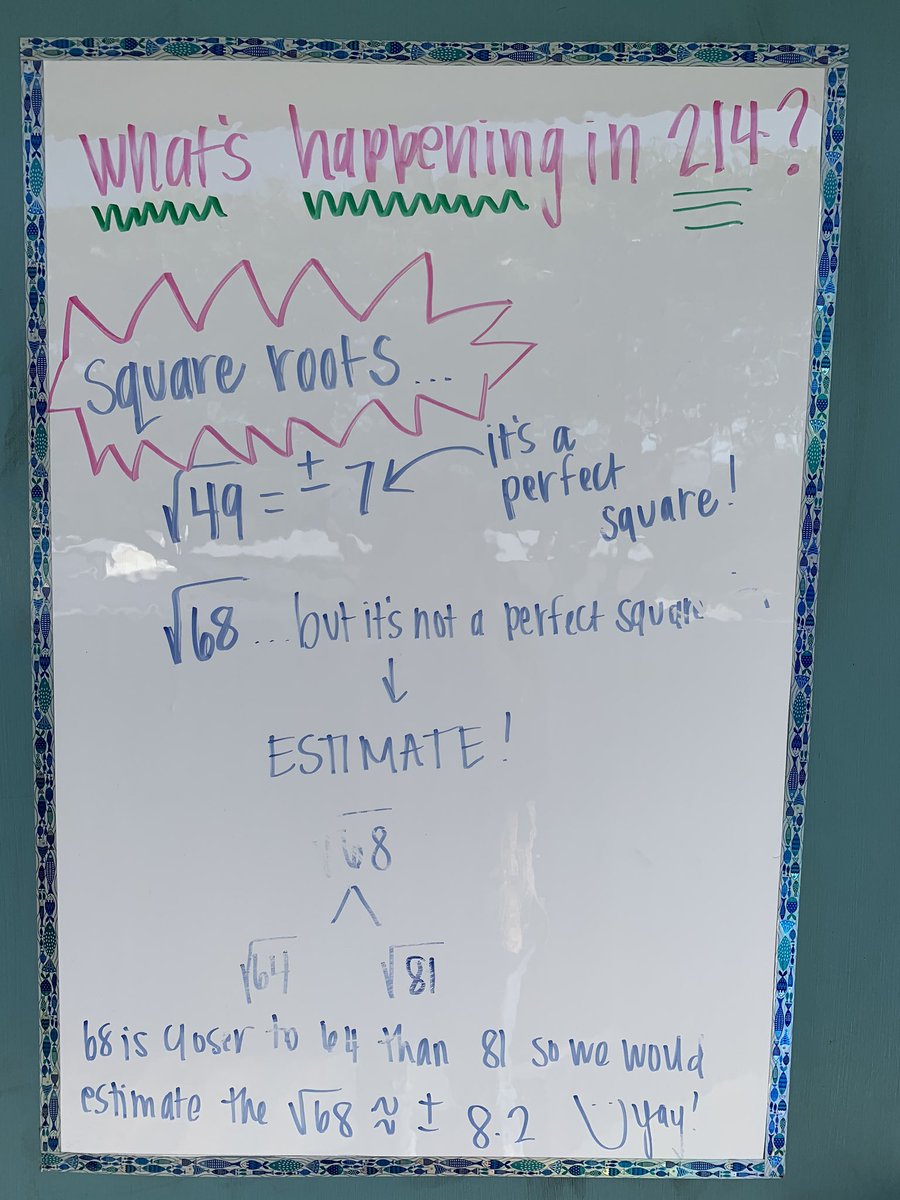 What's happening in 214?
square roots...
√49 = ± 7
it's a
perfect
square!
√68 ...but it's not a perfect square
ESTIMATE!
√68
√64 √81
68 is closer to 64 than 81 so we would
estimate the √68 ≈ ± 8.2 yay!